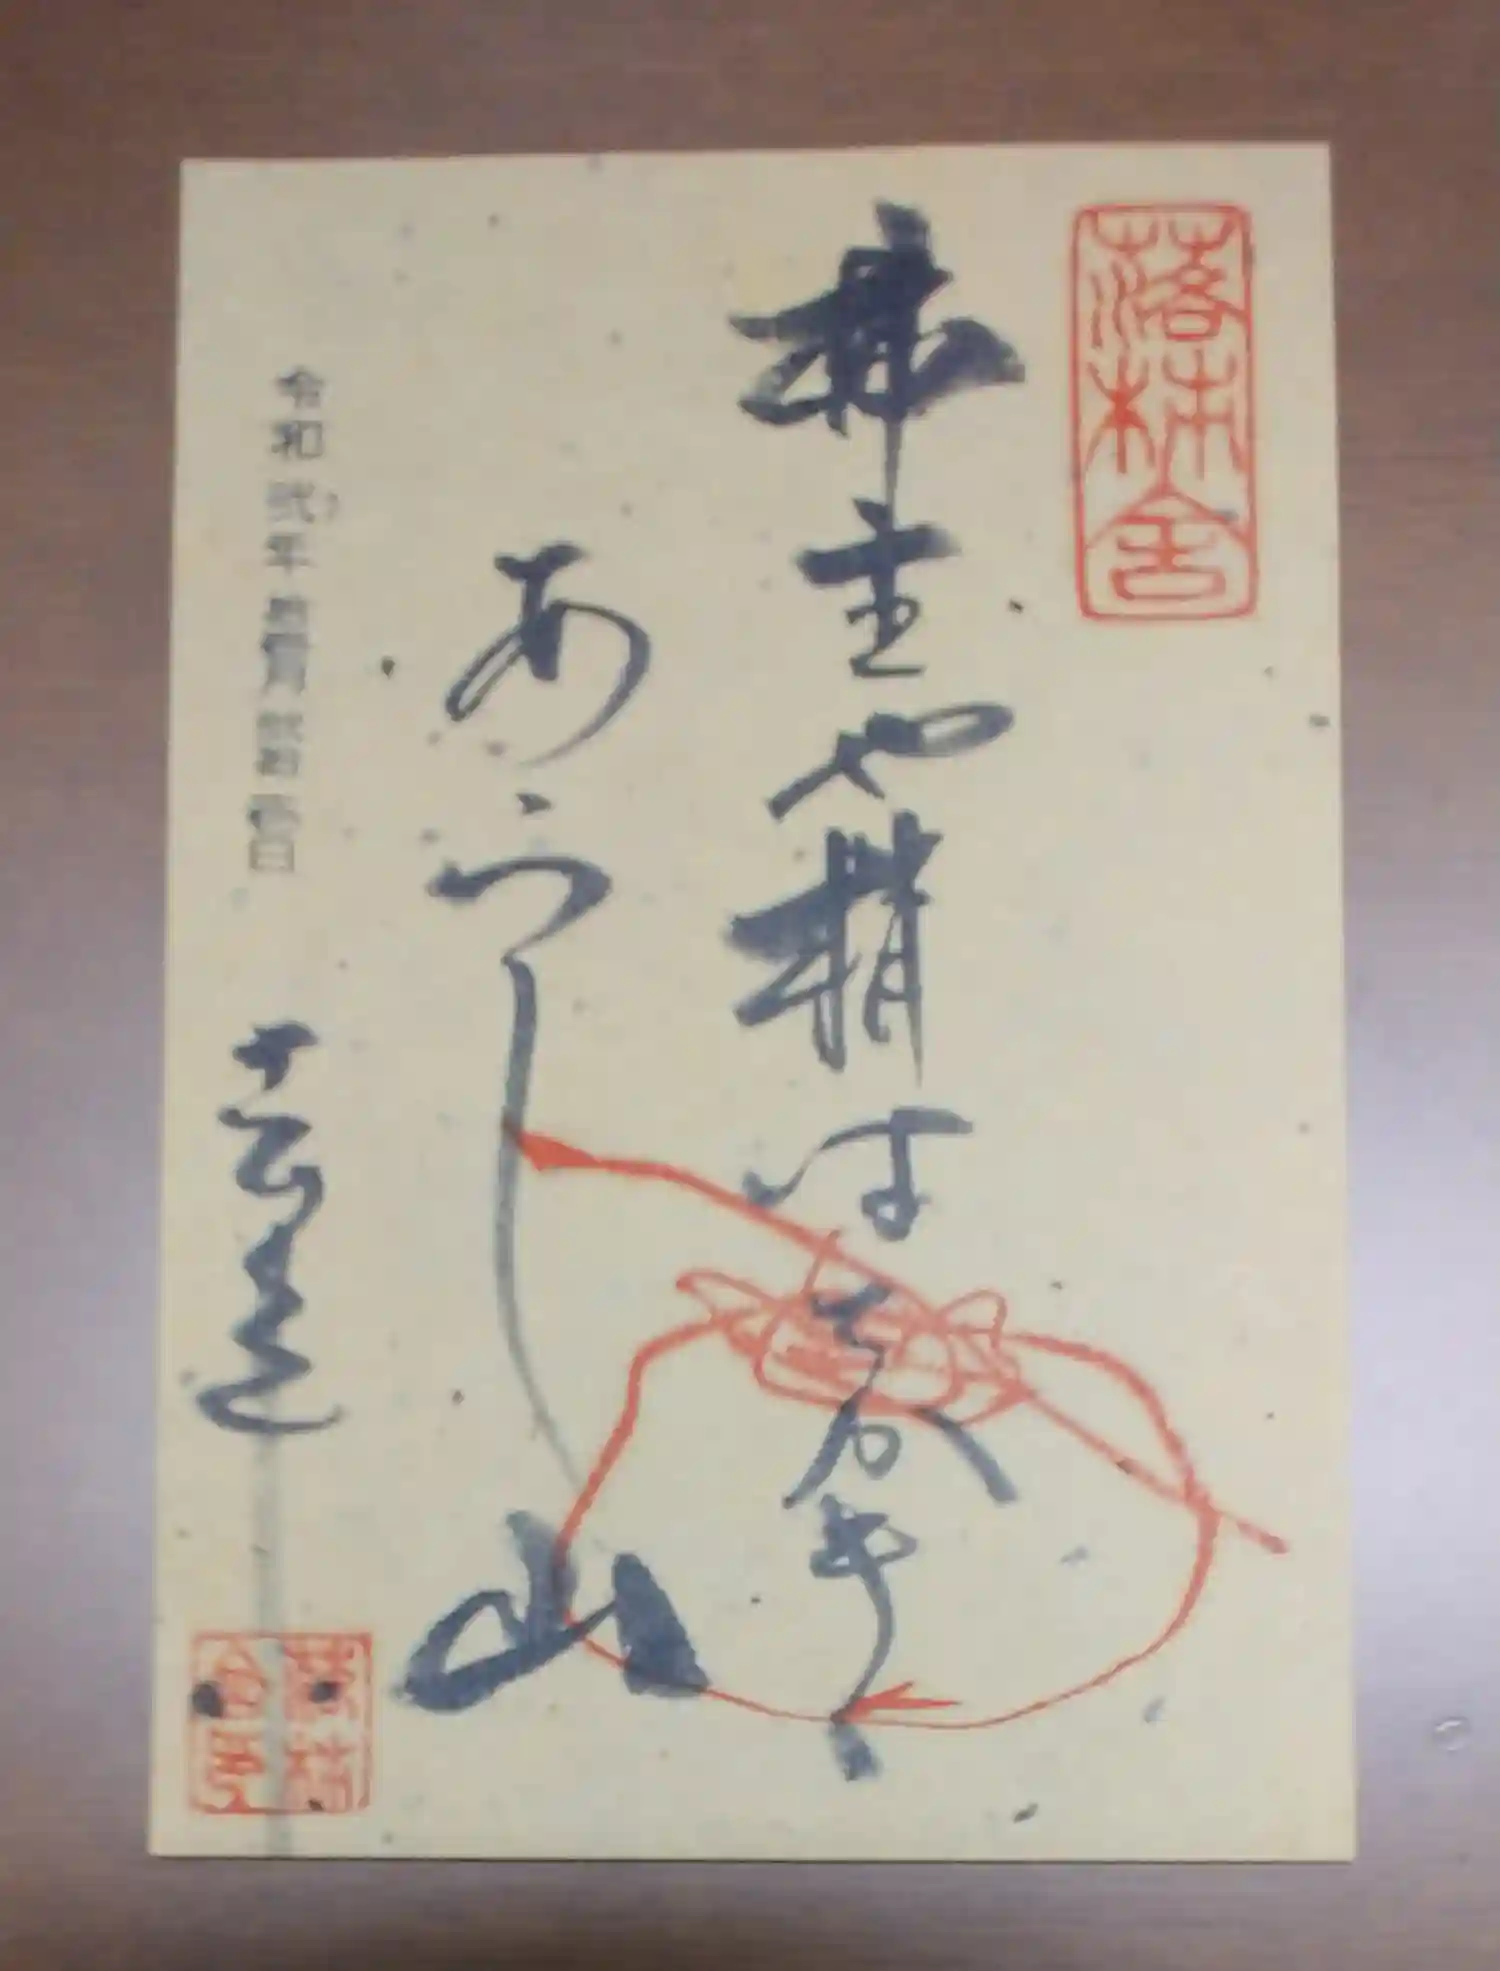 落柿舎
柿主や梢はちかき
あらし山
去来
令和弐年
落柿
舎